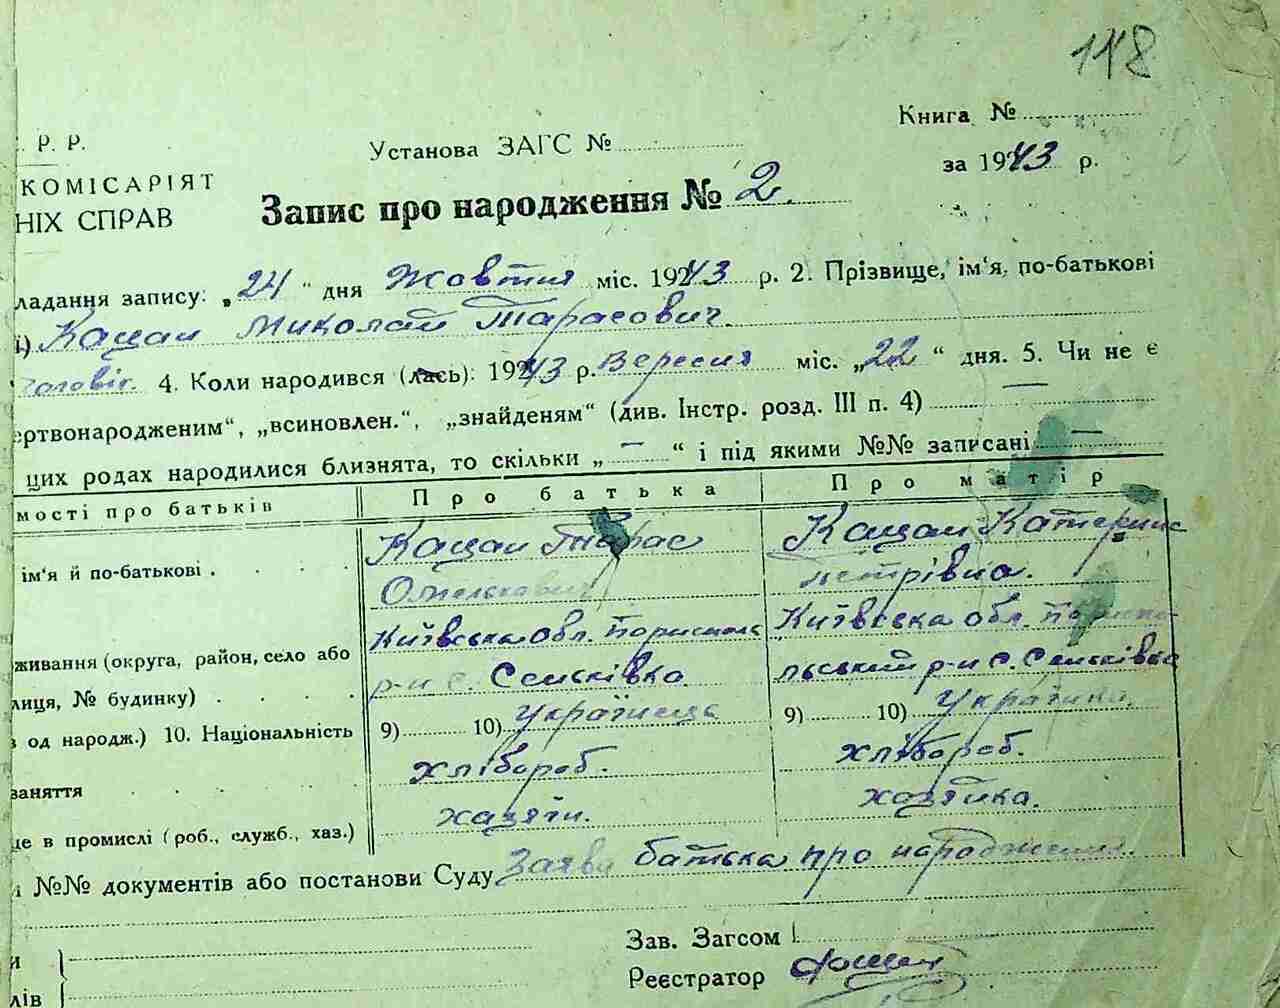 118
Книга №
. Р. Р.
Установа ЗАГС №
за 1943 р.
КОМІСАРІЯТ
НІХ СПРАВ
Запис про народження № 2.
ладання запису: „24" дня Жовтня міс. 1943 р. 2. Прізвище, ім‘я, по-батькові
і) Кацан Миколай Тарасович.
Чоловіч. 4. Коли народився (лась): 1943 р. Вересня міс. „22“ дня. 5. Чи не є
ертвонародженим“, „всиновлен.“, „знайденям“ (див. Інстр. розд. III п. 4) —
цих родах народилися близнята, то скільки „ — “ і під якими №№ записані —
мості про батьків Про батька Про матір
ім‘я й по-батькові . Кацан Тарас Кацан Катерина
Омелькович Петрівна.
Київська обл. Бориспол Київська обл. Бориспо-
живання (округа, район, село або р-н с. Сеньківка льський р-н с. Сеньківка
лиця, № будинку) .
в од народж.) 10. Національність 9) 10) Українець 9) 10) Українка.
заняття хлібороб. хлібороб.
це в промислі (роб., служб., хаз.) хазяїн. хазяйка.
і №№ документів або постанови Суду Заява батька про народження.
Зав. Загсом
и
Реєстратор
лів